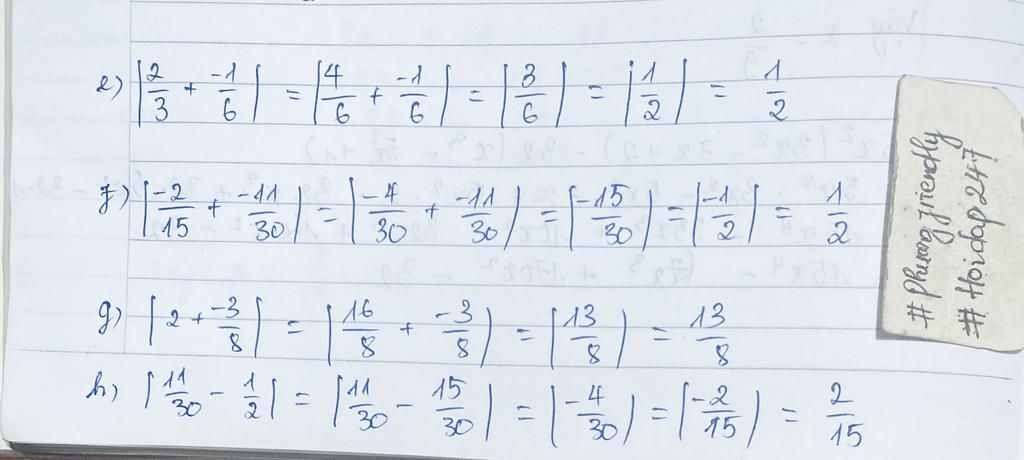 e) |2/3 + -1/6| = |4/6 + -1/6| = |3/6| = |1/2| = 1/2
f) |-2/15 + -11/30| = |-4/30 + -11/30| = |-15/30| = |-1/2| = 1/2
g) |2 + -3/8| = |16/8 + -3/8| = |13/8| = 13/8
h) |11/30 - 1/2| = |11/30 - 15/30| = |-4/30| = |-2/15| = 2/15
#phuongfriendly
#Hoidap247